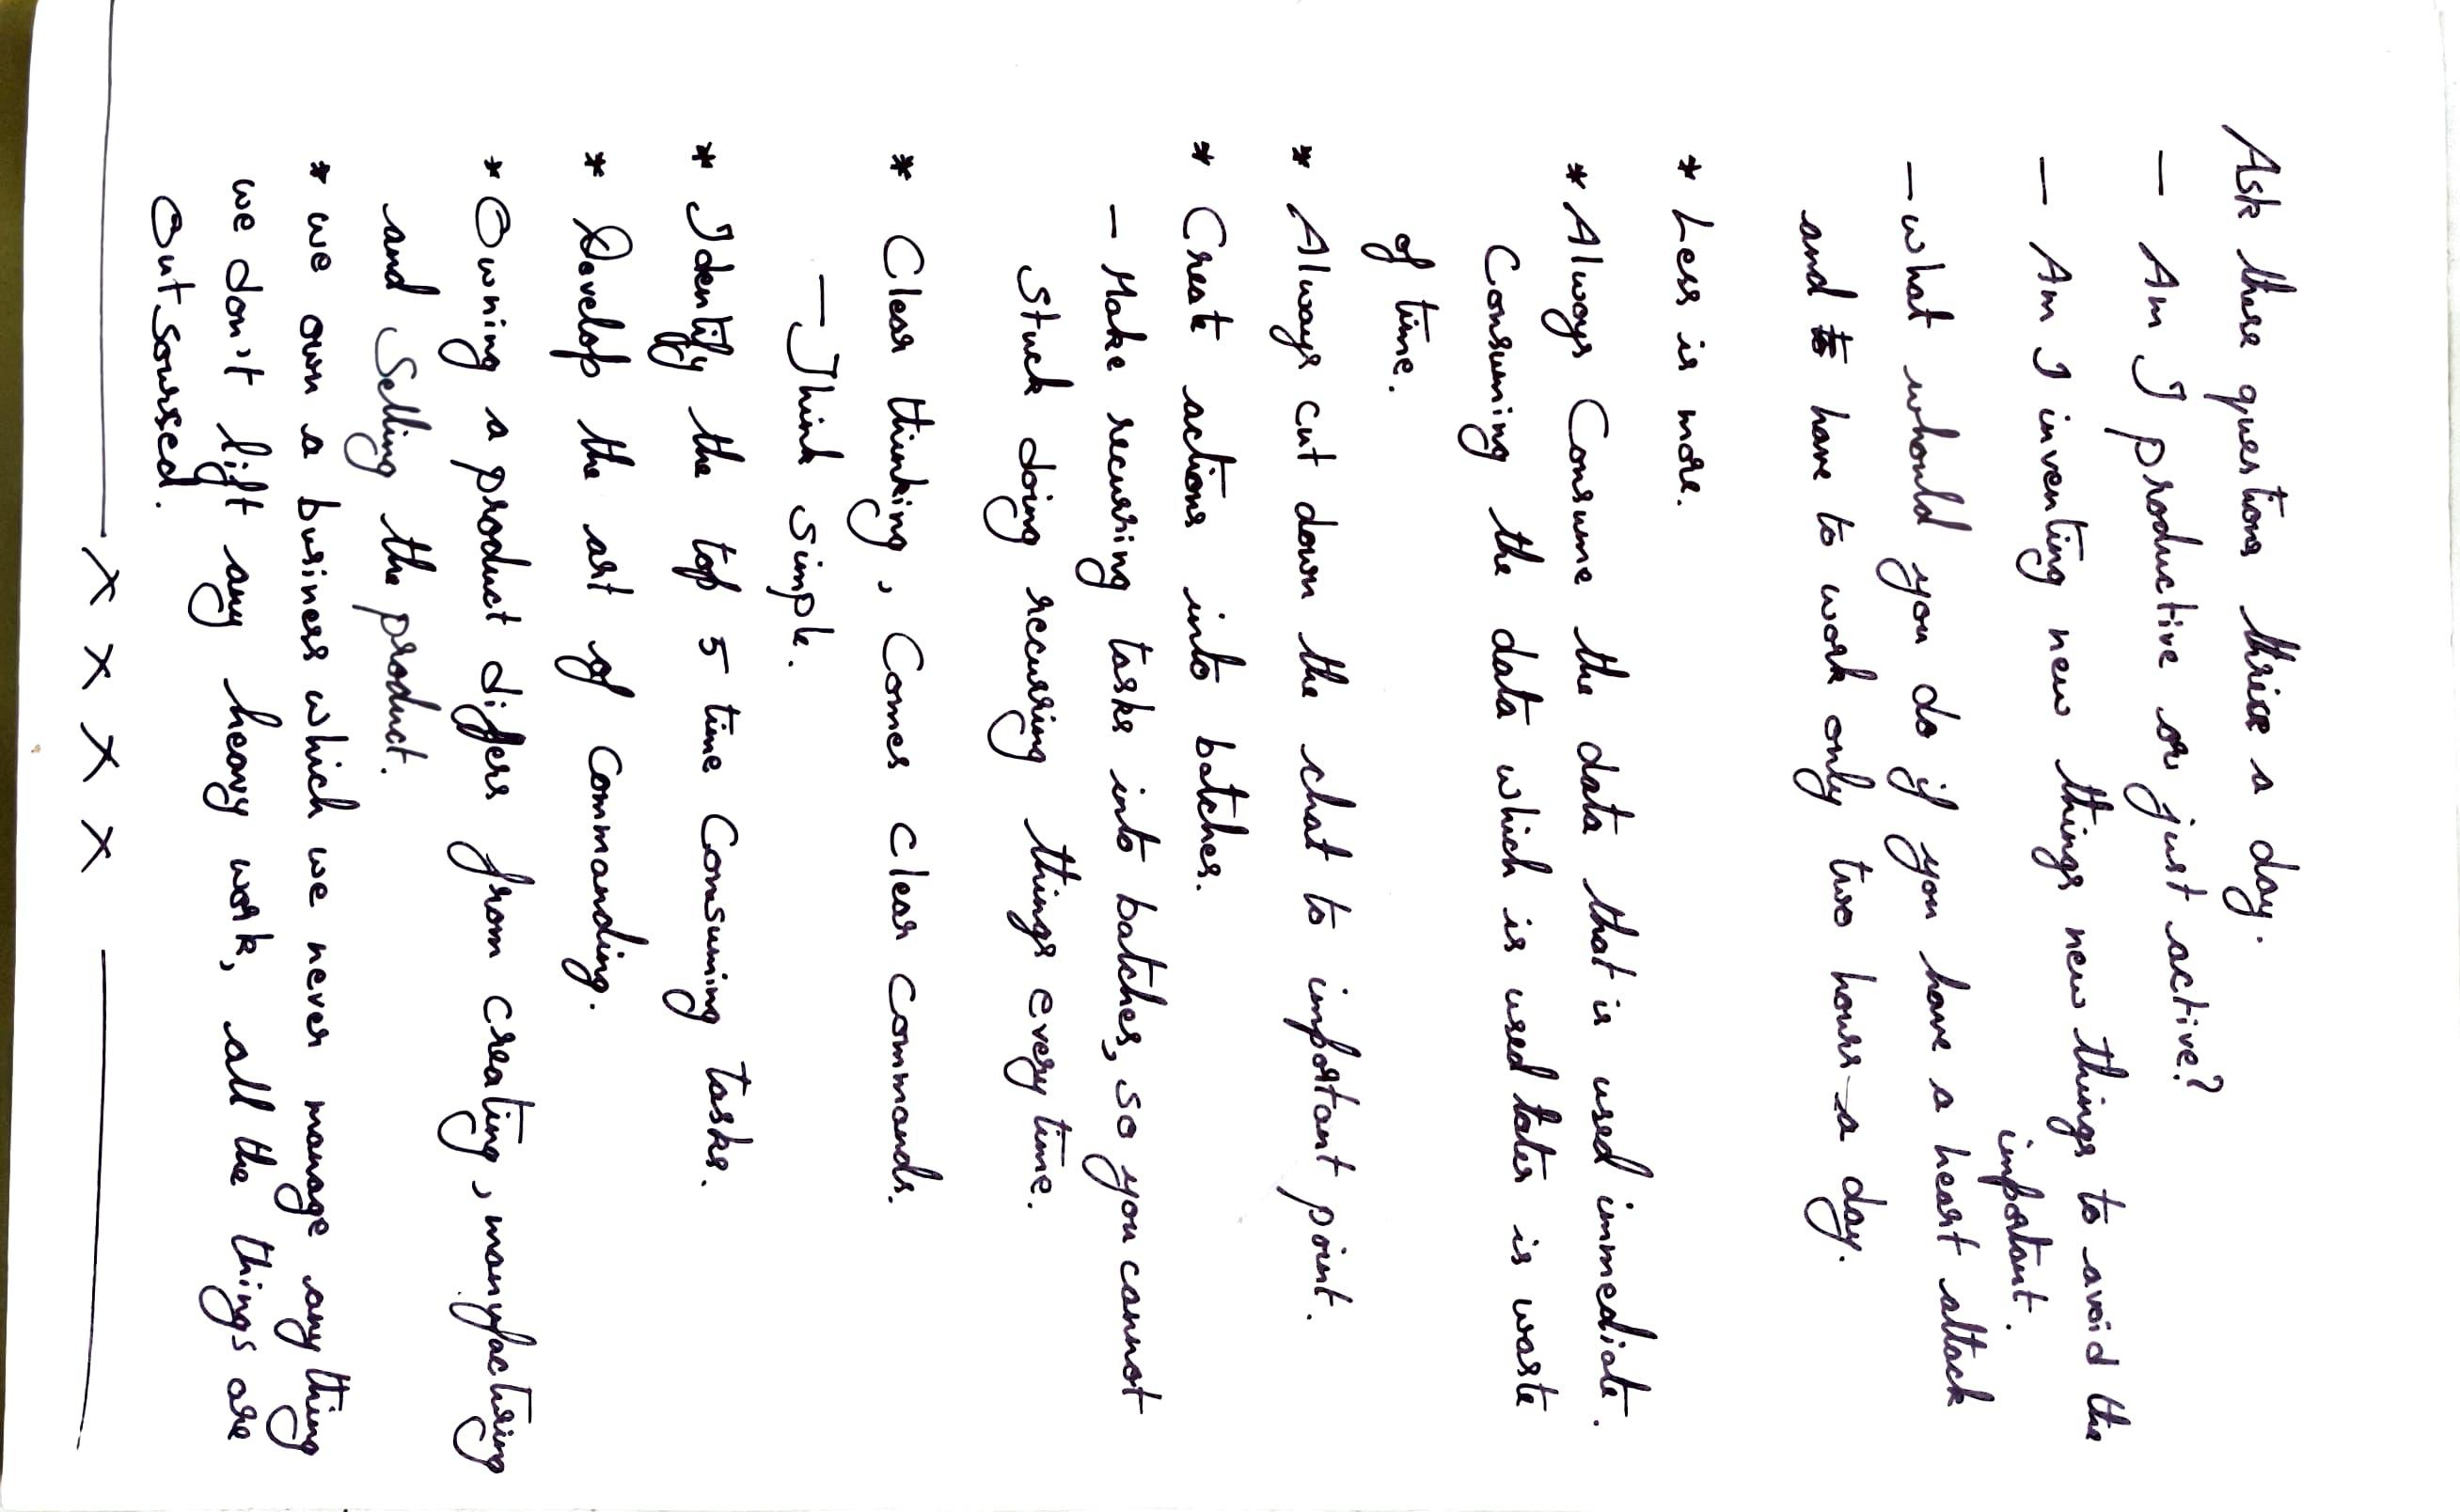 Ask these questions thrice a day.
— Am I productive or just active?
— Am I inventing new things new things to avoid the
important.
— what whould you do if you have a heart attack
and to have to work only two hours a day.
* Less is more.
* Always Consume the data that is used immediate.
Consuming the data which is used later is waste
of time.
* Always cut down the chat to important point.
* Create actions into batches.
— Make recurring tasks into batches, so you cannot
stuck doing recurring things every time.
* Clear thinking, Comes clear commands.
— Think simple.
* Identify the top 5 time Consuming tasks.
* Develop the art of Commanding.
* Owning a product differs from creating, manyfactring
and Selling the product.
* we own a business which we never manage any thing
we don't lift any heavy work, all the things are
Outsoursed.
x x x x